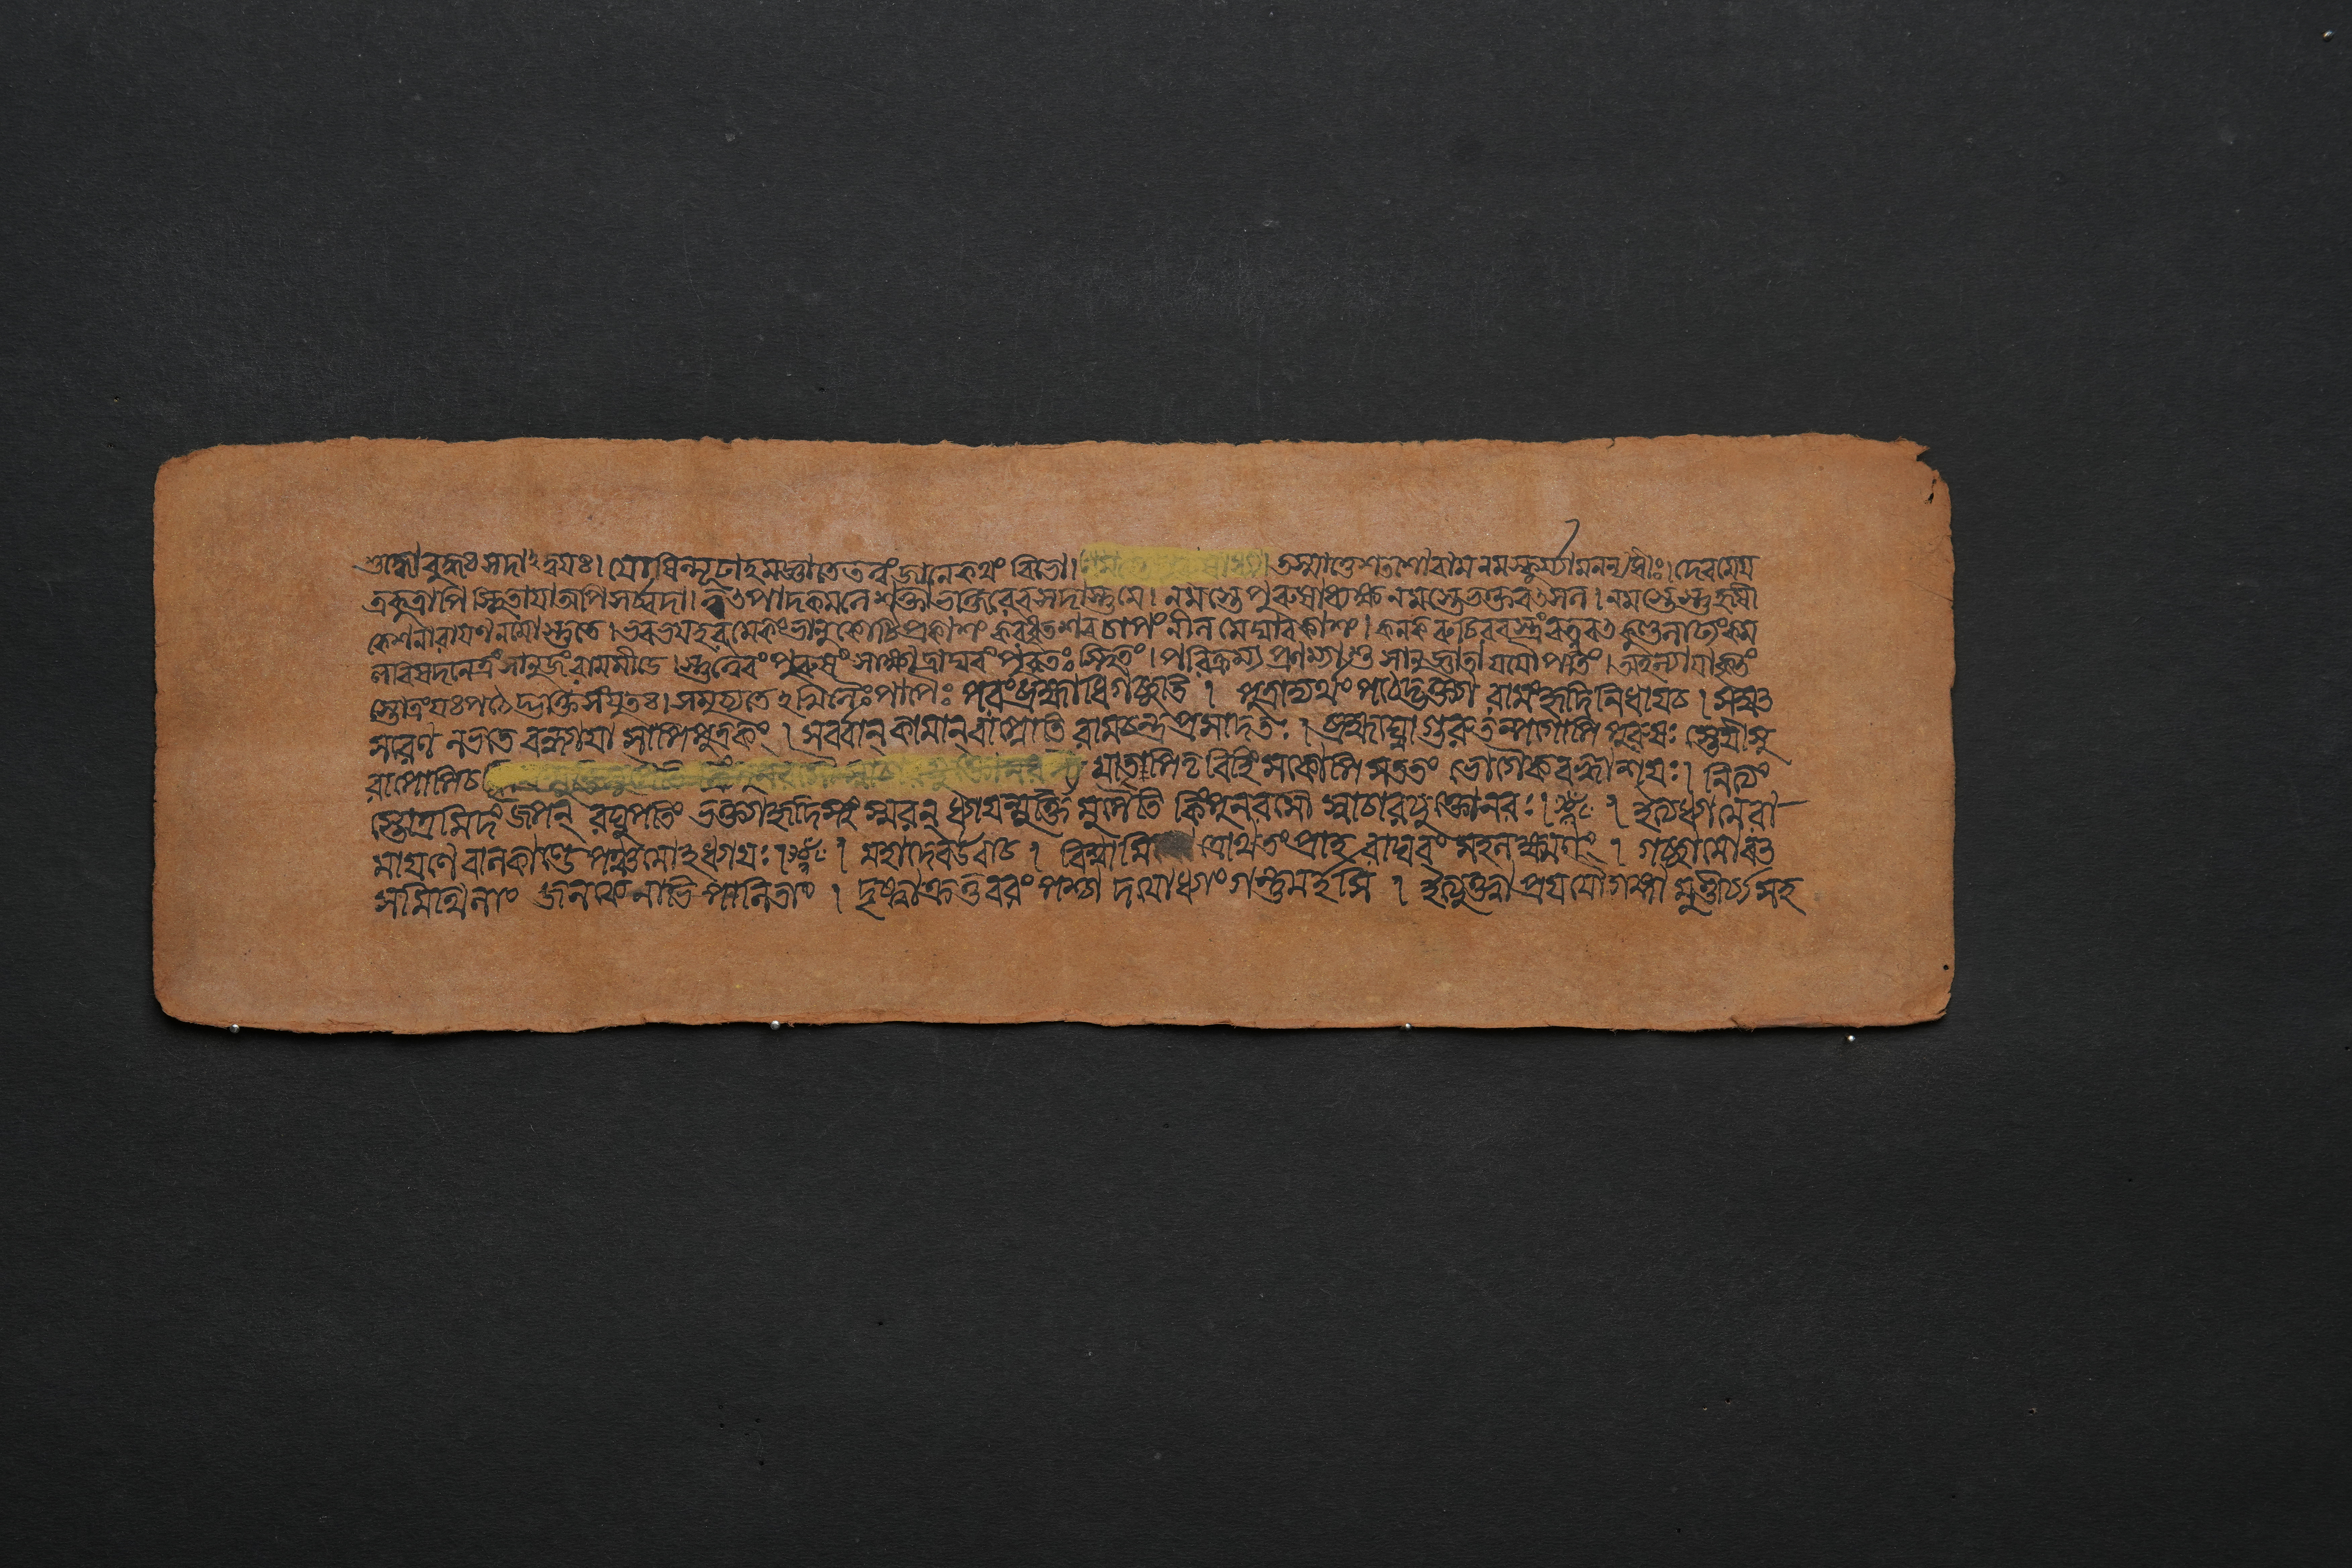 শুদ্ধো বুদ্ধঃ সদাঽদ্বয়ঃ। যোষিন্মূঢাহমজ্ঞা তে তত্ত্বং জানে কথং বিভো। তস্মাত্তে শতশো রাম নমস্কুর্য্যামনন্যধীঃ। দেব মে য
ত্র কুত্রাপি স্থিতায়া অপি সর্ব্বদা। ত্বৎপাদকমলে শক্তা ভক্তিরেব সদাস্তু মে। নমস্তে পুরুষাধ্যক্ষ নমস্তে ভক্তবৎসল। নমস্তেস্তু হৃষী
কেশ নারায়ণ নমোস্তুতে। ভবভয়হরমেকং ভানুকোটিপ্রকাশং করধৃতশরচাপং নীলমেঘাবকাশং। কনকরুচিরবস্ত্রং রত্নবৎকুণ্ডলাঢ্যং কম
লবিসদনেত্রং সানুজং রামমীডে। স্তুত্বৈবং পুরুষং সাক্ষাদ্রাঘবং পুরতঃ স্থিতং। পরিক্রম্য প্রণম্যাশু সানুজ্ঞাতা যযৌ পতিং। অহল্যয়া কৃতং
স্তোত্রং যঃ পঠেদ্ভক্তিসংযুতঃ। স মুচ্যতেঽখিলৈঃ পাপৈঃ পরং ব্রহ্মাধিগচ্ছতি। পুত্রাদ্যর্থং পঠেদ্ভক্ত্যা রামং হৃদি নিধায় চ। সম্বৎ
সরেণ লভতে বন্ধ্যায়া সাপি পুত্রকং। সর্বান্ কামান্ বাপ্নোতি রামচন্দ্রপ্রসাদতঃ। ব্রহ্মঘ্নো গুরুতল্পগোপি পুরুষঃ স্তেয়ী সু
রাপোপি চ মাতৃ বিহিংসকোপি সততং ভোগৈকবদ্ধাশয়ঃ। নিত্যং
স্তোত্রমিদং জপন্ রঘুপতিং ভক্ত্যা হৃদিস্থং স্মরন্ ধ্যায়ন্মুক্তিমুপৈতি কিং পুনরসৌ স্বাচারযুক্তো নরঃ।। ইত্যধ্যাত্মরা
মায়ণে বালকাণ্ডে পঞ্চমোঽধ্যায়ঃ।। মহাদেব উবাচ। বিশ্বামি ত্রোথ তং প্রাহ রাঘবং সহলক্ষ্মণং। গচ্ছামো বৎ
স মিথিলাং জনকেনাভিপালিতাং। দৃষ্ট্বা ক্রতুবরং পশ্চাদযোধ্যাং গন্তুমর্হসি। ইত্যুক্ত্বা প্রযযৌ গঙ্গামুত্তর্ত্তুং সহ